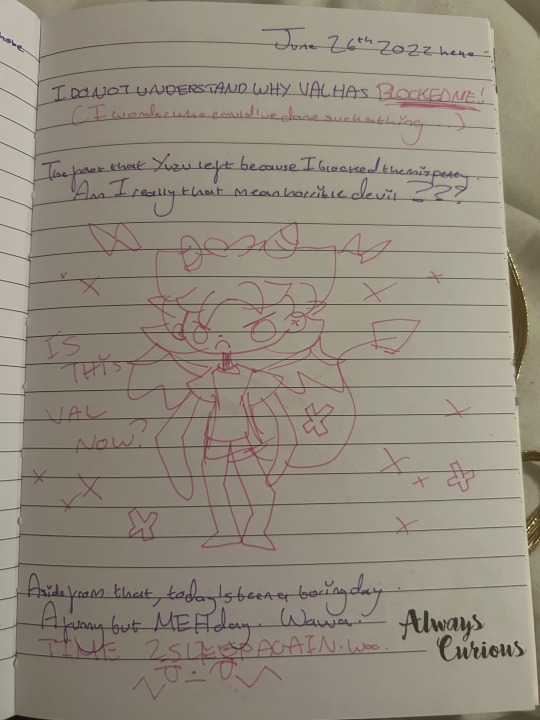 June 26th 2022 here
I DO NOT UNDERSTAND WHY VAL HAS BLOCKED ME!
( I wonder who could've done such a thing...)
The fear that Yuzu left because I blocked them is
Am I really that mean horrible devil ???
IS
THIS
VAL
NOW?
Aside from that, today's been a boring day.
A funny but MEH day. Wawa.
TIME 2 SLEEP AGAIN. Woo.
Always
Curious